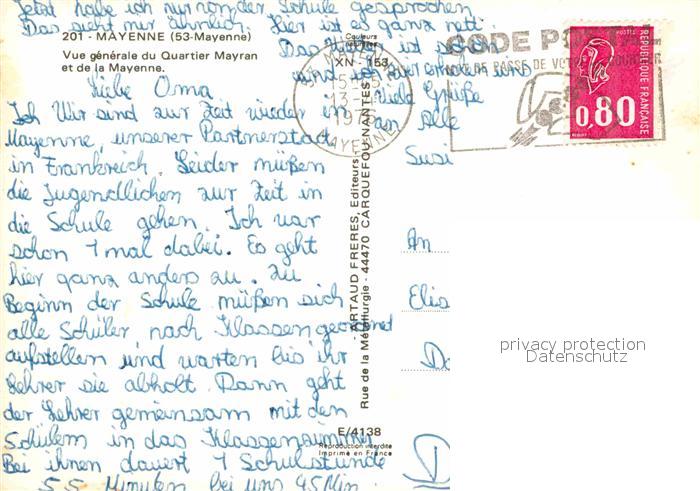 Jetzt habe ich nur von der Schule gesprochen
Das sieht mir ähnlich. Hier ist es ganz nett.
201 - MAYENNE (53-Mayenne)
Vue générale du Quartier Mayran
et de la Mayenne.
Couleurs
naturelles
XN - 153
Das Wetter ist schön
und
viele Grüße
an Alle
Susi
Liebe Oma
Ich Wir sind zur Zeit wieder in
Mayenne, unserer Partnerstadt
in Frankreich. Leider müßen
die Jugendlichen zur Zeit in
die Schule gehen. Ich war
schon 1 mal dabei. Es geht
hier ganz anders zu. Zu
Beginn der Schule müßen sich
alle Schüler nach Klassen geordnet
aufstellen und warten bis ihr
Lehrer sie abholt. Dann geht
der Lehrer gemeinsam mit den
Schülern in das Klassenzimmer
Bei ihnen dauert 1 Schulstunde
55 Minuten bei uns 45 Min.
ARTAUD FRERES, Editeurs
Rue de la Métallurgie - 44470 CARQUEFOU-NANTES
E/4138
Reproduction interdite
Imprimé en France
MAYENNE
CODE POSTAL
MOT DE PASSE DE VOTRE COURRIER
POSTES
REPUBLIQUE FRANÇAISE
0,80
An
Elis
privacy protection
Datenschutz